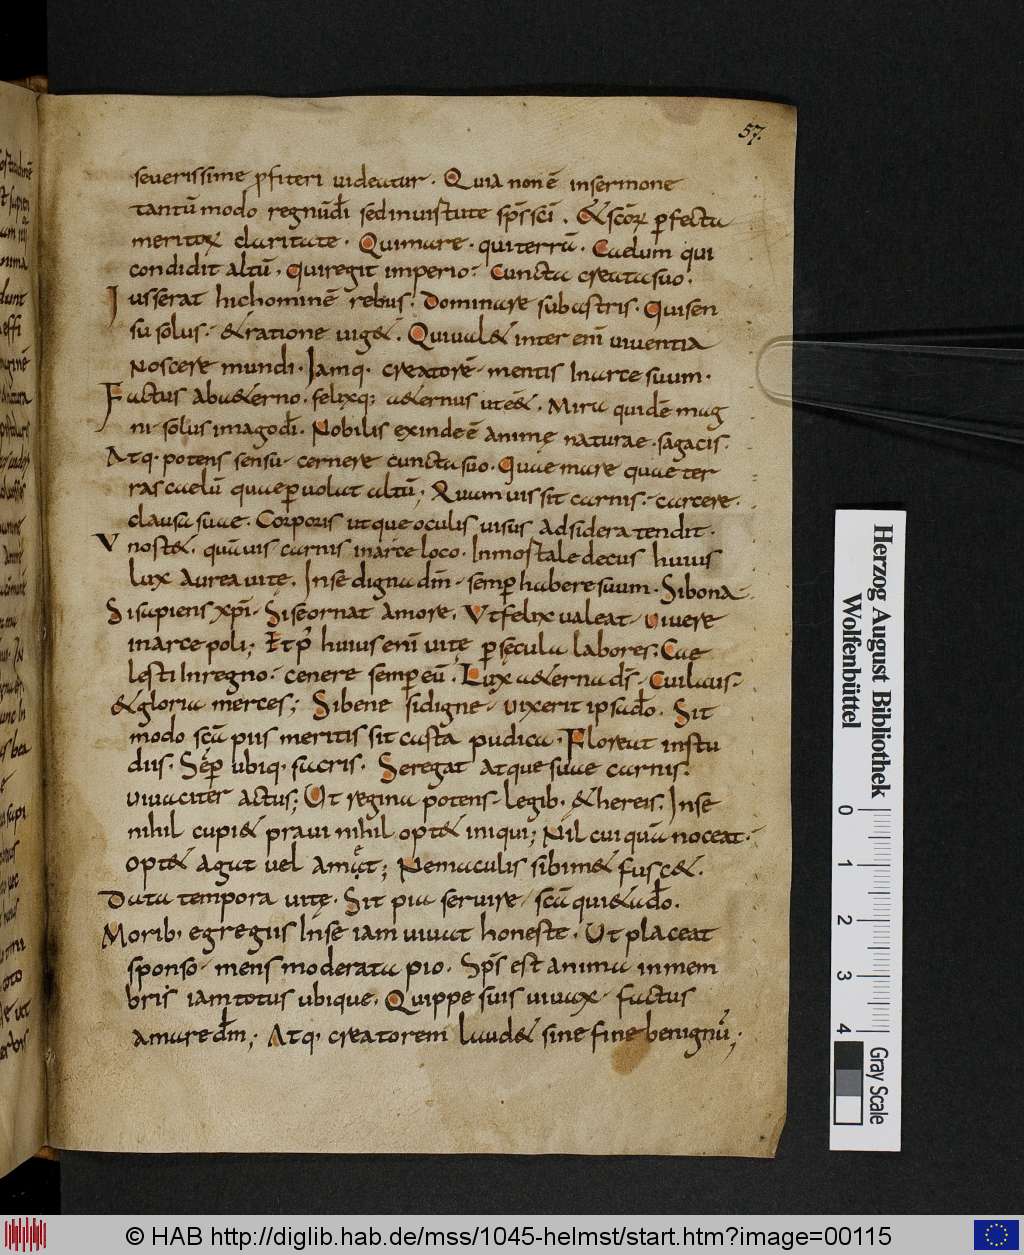 57.
severissime p̄fiteri videatur. Quia non ē insermone
tantū modo regnū dī sed in uirtute sp̄s scī. & scōꝝ p̱fecta
meritoꝝ claritate. Qui mare. qui terrā. Caelum qui
condidit altū. Qui regit imperio: Cuncta creata suo.
Iusserat hic hominē rebus. Dominare sub astris. Qui sen
su solus. & ratione uig&. Qui ual& inter enī viventia
Noscere mundi. Iamq. creatorē mentis In arce suum.
Factus ab a&erno. felixq; a&ernus ut ē&. Mira quidē mag
ni solus imago dī. Nobilis exinde ē animę naturae. sagacis.
Atq. potens sensu cernere cuncta suo. Quae mare quae ter
ras caelū quae p̱volat altū; Quamvis sit carnis. carcere.
clausa suae. Corporis utque oculis visus ad sidera tendit.
Vnost&. quāvis carnis in arce loco. Inmortale decus huius
lux Aurea vitę. In se digna dm̄. semp̱ habere suum. Si bona
Si sapiens xp̄i. Si se ornat amore. Ut felix valeat vivere
in arce poli; Et p̄ huius enī vitę p̱ sęcula labores. Cae
lesti In regno. cenere semp̱ eū. Lux a&erna dī. Cui laus.
& gloria merces; Si bene si digne vixerit ipsa dō. Sit
modo scā piis meritis sit casta pudica. Floreat instu
diis. Sēp̱ ubiq. sacris. Se regat atque suae carnis.
vivaciter actus; Ut regina potens legib. & hereis. In se
nihil cupi& pravi nihil opt& iniqui; Nil cui quā noceat.
opt& agat vel amat; Ne maculis sibim& fusc&.
Data tempora vitę. Sit pia servire scā quiēadō.
Morib, egregiis In se iam vivat honeste. Ut placeat
sponso mens moderata pio. Sp̄s est anima in mem
bris iam totus ubique. Quippe suis vivax factus
amare dm̄; Atq, creatorem laud& sine fine benignū;
Herzog August Bibliothek
Wolfenbüttel
0 1 2 3 4
Gray Scale
© HAB http://diglib.hab.de/mss/1045-helmst/start.htm?image=00115